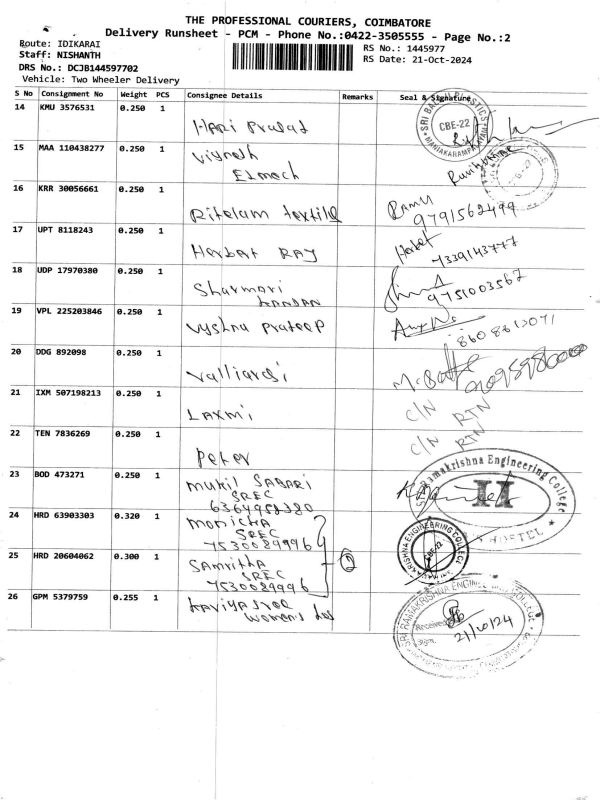 THE PROFESSIONAL COURIERS, COIMBATORE
Delivery Runsheet - PCM - Phone No.:0422-3505555 - Page No.:2
Route: IDIKARAI
RS No.: 1445977
Staff: NISHANTH
RS Date: 21-Oct-2024
DRS No.: DCJB144597702
Vehicle: Two Wheeler Delivery
S No Consignment No Weight PCS Consignee Details Remarks Seal & Signature
14 KMU 3576531 0.250 1 Hari Prasat
SRI BALAJI PLASTICS
CBE-22
15 MAA 110438277 0.250 1 Vignesh
16 KRR 30056661 0.250 1 textile Ramu
9791562499
17 UPT 8118243 0.250 1 Herbat RAJ
7339143777
18 UDP 17970380 0.250 1 Sharmari
9751003567
19 VPL 225203846 0.250 1 Vyshnu Prateep
20 DDG 892098 0.250 1 Valliarasi
21 IXM 507198213 0.250 1 Laxmi C/N RTN
22 TEN 7836269 0.250 1 Peter C/N RTN
23 BOD 473271 0.250 1 Mukil SABARI
SREC
Ramakrishna Engineering College
II
HOSTEL
24 HRD 63903303 0.320 1 Monicka
SREC
7530089996
25 HRD 20604062 0.300 1 Samritha
SREC
7530089996
RAMAKRISHNA ENGINEERING COLLEGE
CBE-22
26 GPM 5379759 0.255 1 Kaviya Sree
Womens Hos
SRI RAMAKRISHNA ENGINEERING COLLEGE
Received
Sign.
21/10/24